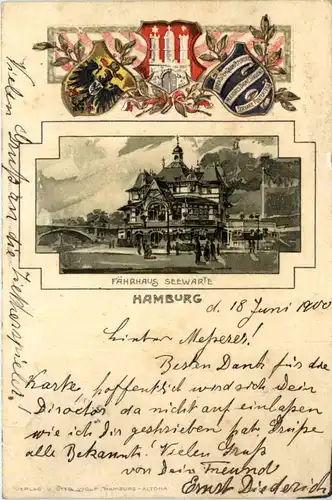 FÄHRHAUS SEEWARTE
HAMBURG
d. 18 Juni 1900
Lieber
Besten Dank für die
Karte hoffentlich wird sich Dein
Director da nicht auf einlassen
wie ich Dir geschrieben hab Grüße
alle Bekannte! Vielen Gruß
von Dein Freund
Ernst Diederich
Vielen Gruß an die
VERLAG V. OTTO WOLF, HAMBURG-ALTONA